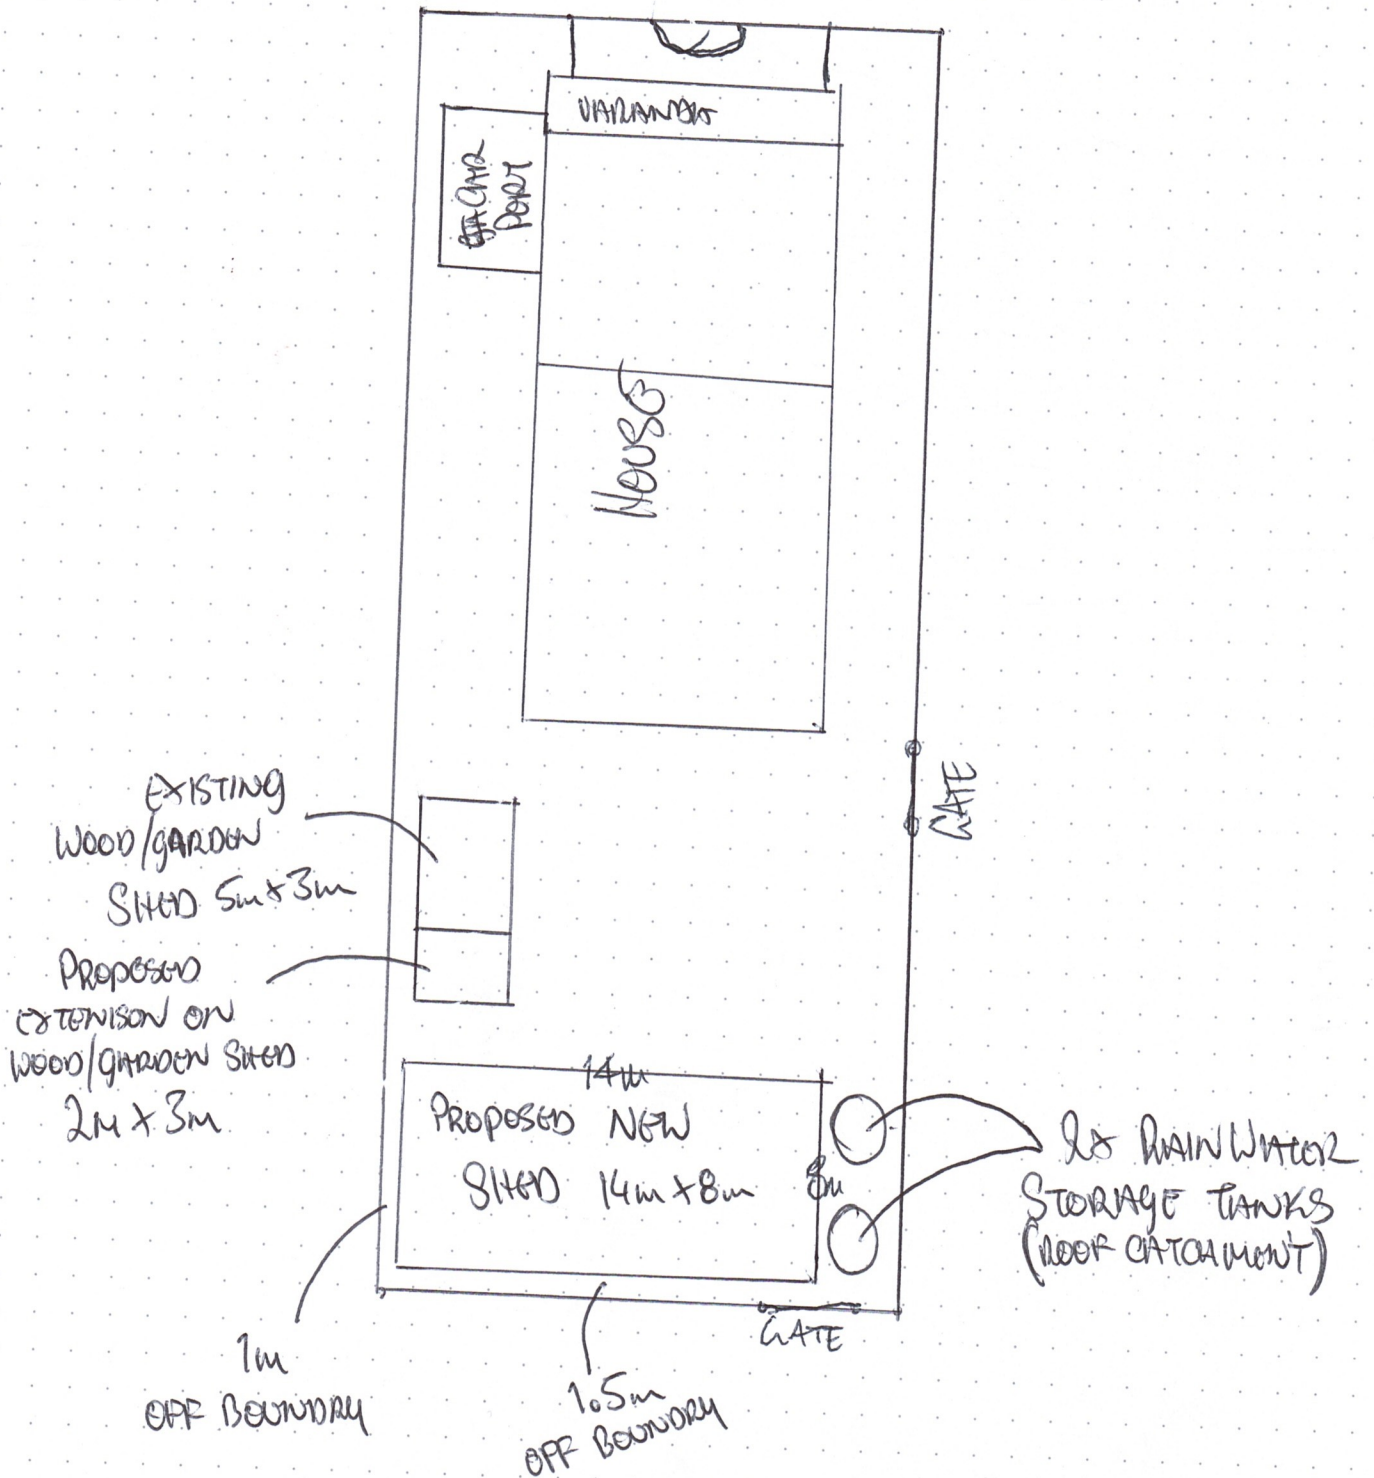 VARANDA
CAR
PORT
HOUSE
EXISTING
WOOD/GARDEN
SHED 5m x 3m
GATE
PROPOSED
EXTENISON ON
WOOD/GARDEN SHED
2m x 3m
14m
PROPOSED NEW
SHED 14m x 8m
8m
2x RAIN WATER
STORAGE TANKS
(ROOF CATCHMENT)
GATE
1m
OFF BOUNDRY
1.5m
OFF BOUNDRY